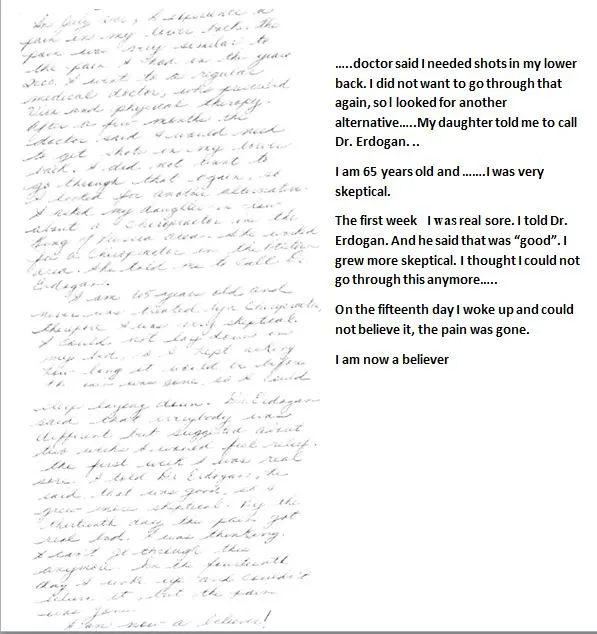 In July 200, I experience a
pain in my lower back. The
pain was very similar to
the pain I had in the year
2000. I went to a regular
medical doctor, who
and physical therapy.
After a few month the
doctor said I would need
to get shots in my lower
back. I did not want to
go through that again, so
I looked for another alternative.
I asked my daughter-in-law
about a Chiropractor in the
King of Prussia area. She worked
for a Chiropractor in the
area. She told me to call D.
Erdogan.
I am 65 years old and
never was treated by a Chiropractor,
therefore I was very skeptical.
I could not lay down in
my bed, so I kept asking
how long it would be before
the pain was gone, so I could
sleep laying down. Dr. Erdogan
said that everybody was
different but suggested about
two weeks I would feel relief.
the first week I was real
sore. I told Dr. Erdogan, he
said, that was good, so I
grew more skeptical. By the
thirteenth day the pain got
real bad. I was thinking.
I can't go through this
anymore. On the fourteenth
day I woke up and couldn't
believe it, but the pain
was gone.
I am now a believer!
.....doctor said I needed shots in my lower
back. I did not want to go through that
again, so I looked for another
alternative.....My daughter told me to call
Dr. Erdogan. ..
I am 65 years old and .......I was very
skeptical.
The first week I was real sore. I told Dr.
Erdogan. And he said that was “good”. I
grew more skeptical. I thought I could not
go through this anymore.....
On the fifteenth day I woke up and could
not believe it, the pain was gone.
I am now a believer